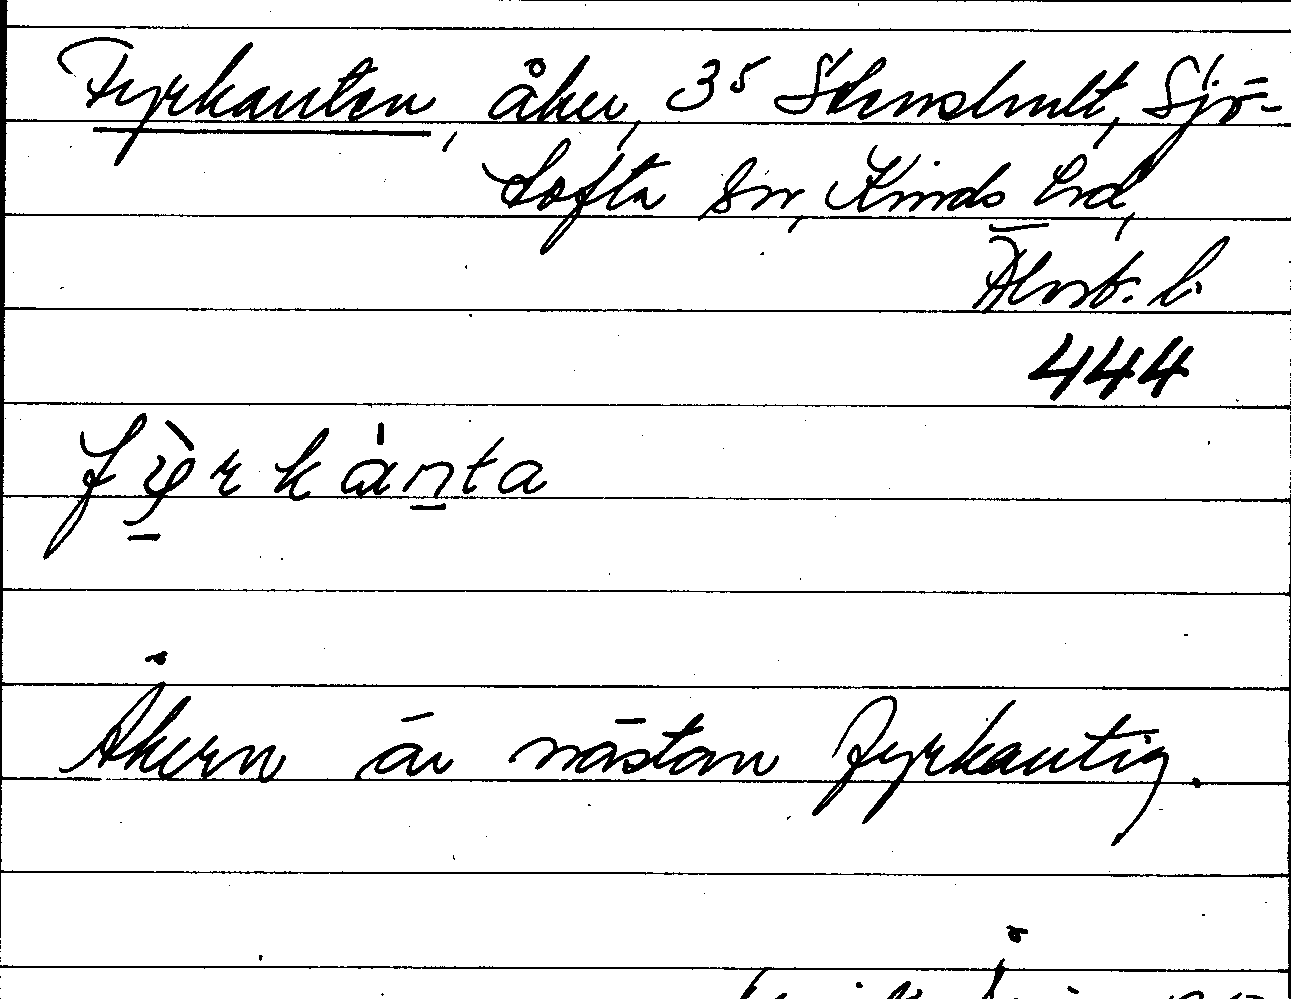 Fyrkanten, åker, 3⁵ Stenshult, Sjö-
tofta sn, Kinds hd,
Älvsb. l.
444
fỳ̠rkȧn̠ta
Åkern är nästan fyrkantig.